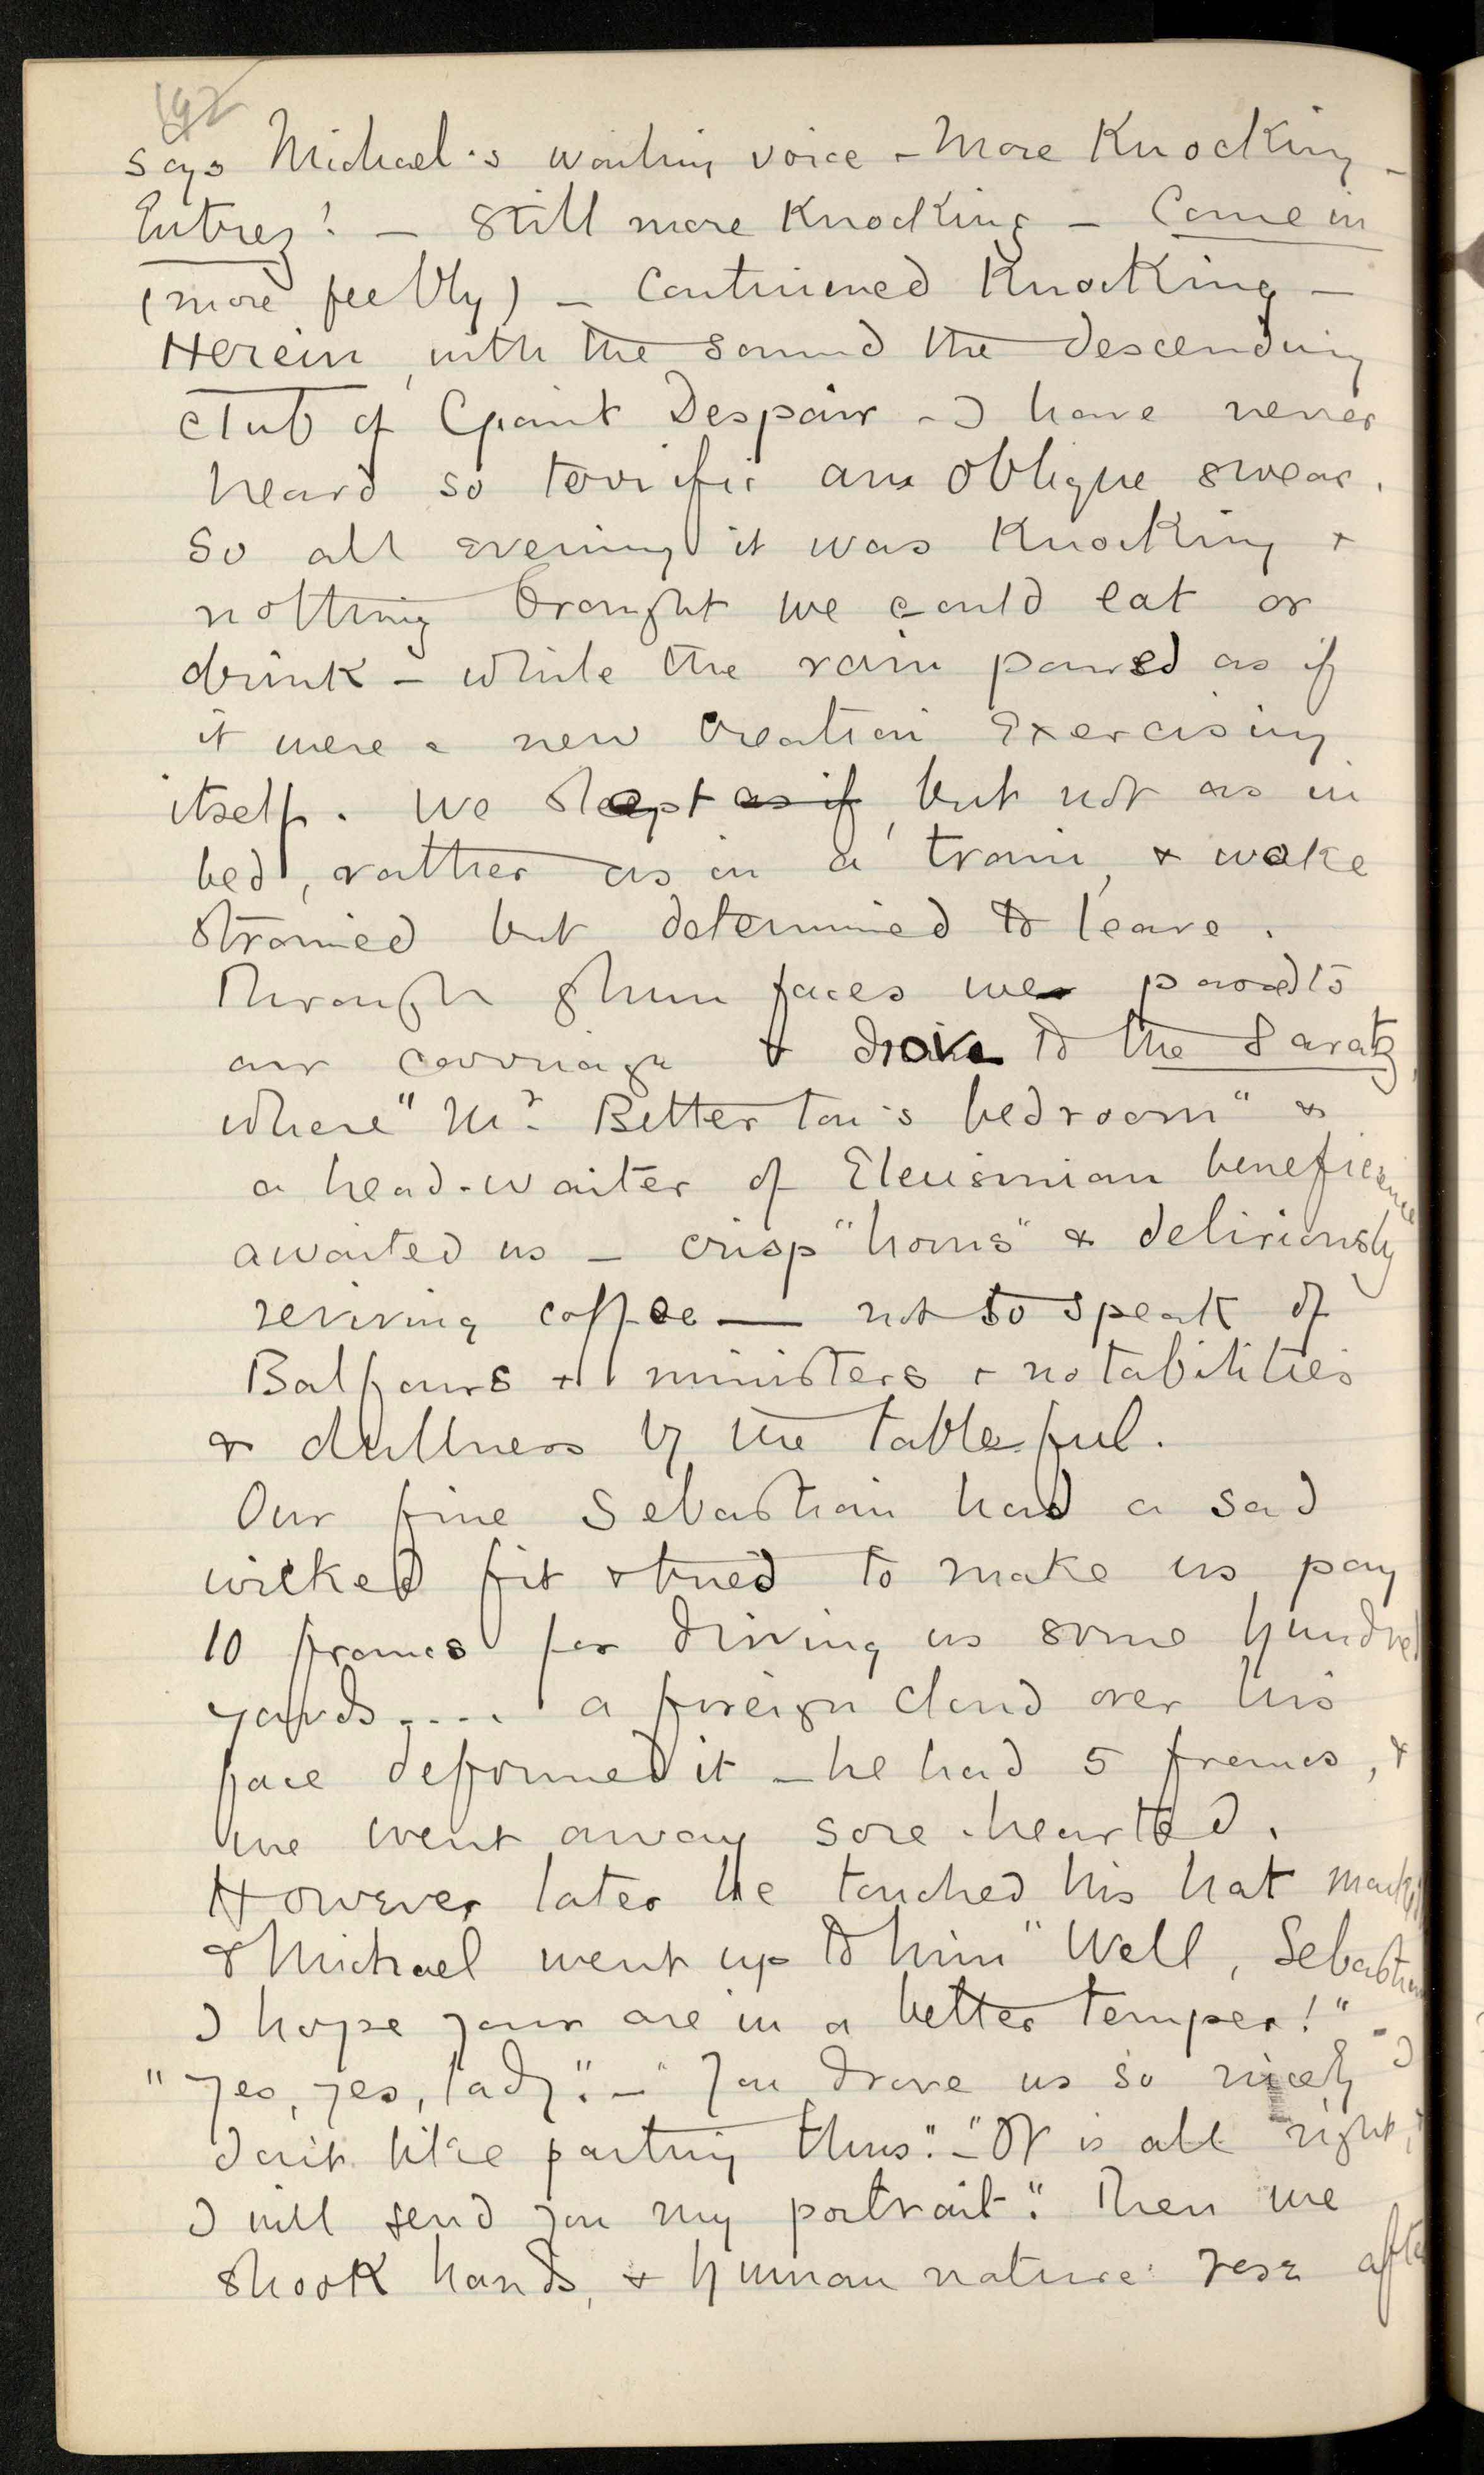 192
says Michael's wailing voice - More Knocking -
Entrez! - Still more Knocking - Come in
(more feebly) - Continued Knocking -
Herein, with the sound the descending
club of Giant Despair - I have never
heard so terrific an oblique swear.
So all evening it was Knocking &
nothing brought we could eat or
drink - while the rain poured as if
it were a new creation exercising
itself. We slept as if, but not as in
bed, rather as in a train, & woke
strained but determined to leave.
Through glum faces we passed to
our carriage & drove to the Saratz,
where "Mr Betterton's bedroom" &
a head-waiter of Eleusinian beneficence
awaited us - crisp "horns" & deliriously
reviving coffee — not to speak of
Balfours & ministers & notabilities
& dullness by the table-ful.
Our fine Sebastian had a sad
wicked fit & tried to make us pay
10 francs for driving us some hundred
yards .... a foreign cloud over his
face deformed it - he had 5 francs, &
we went away sore-hearted.
However later he touched his hat
& Michael went up to him "Well, Sebastian
I hope your are in a better temper!" -
"Yes, yes, lady." - "You drove us so nicely I
don't like parting thus." - "It is all right,
I will send you my portrait." Then we
shook hands, & human nature rose after